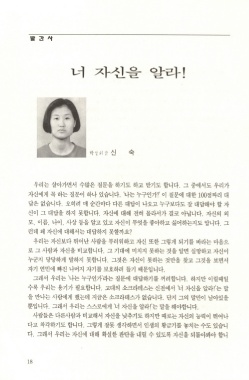 발 간 사
너 자신을 알라!
신 숙
우리는 살아가면서 수많은 질문을 하기도 하고 받기도 합니다. 그 중에서도 우리가
자신에게 꼭 하는 질문이 하나 있습니다. '나는 누구인가?' 이 질문에 대한 100점짜리 대
답은 없습니다. 오히려 매 순간마다 다른 대답이 나오고 누구보다도 잘 대답해야 할 자
신이 그 대답을 하지 못합니다. 자신에 대해 전혀 몰라서가 결코 아닙니다. 자신의 외
모, 이름, 나이, 사상 등을 알고 있고 자신이 무엇을 좋아하고 싫어하는지도 압니다. 그
런데 왜 자신에 대해서는 대답하지 못할까요?
우리는 자신보다 뛰어난 사람을 부러워하고 자신 또한 그렇게 되기를 바라는 마음으
로 그 사람과 자신을 비교합니다. 그 기대에 미치지 못하는 것을 알면 실망하고 자신이
누군지 당당하게 말하지 못합니다. 그것은 자신이 못하는 것만을 찾고 그것을 보면서
자기 반면에 빠진 나머지 자기를 보호하려 들기 때문입니다.
그래서 우리는 '나는 누구인가'라는 질문에 대답하기를 꺼려합니다. 하지만 이럴때일
수록 우리는 용기가 필요합니다. 고대의 소크라테스는 진실에서 '너 자신을 알라'는 말
을 만나는 사람에게 했는데 지금은 소크라테스가 없습니다. 단지 그의 말만이 남아있을
뿐입니다. 그래서 우리 스스로에게 '너 자신을 알라'고 말해야 합니다.
사람들은 다른사람과 비교해서 자신을 낮추기도 하지만 때로는 자신의 능력이 뛰어나
다고 착각하기도 합니다. 그렇게 잠못 생각하면서 인생의 황금기를 놓치는 수도 있습니
다. 그래서 우리는 자신에 대해 확실한 판단을 내릴 수 있도록 자신을 되돌아봐야 합니
18